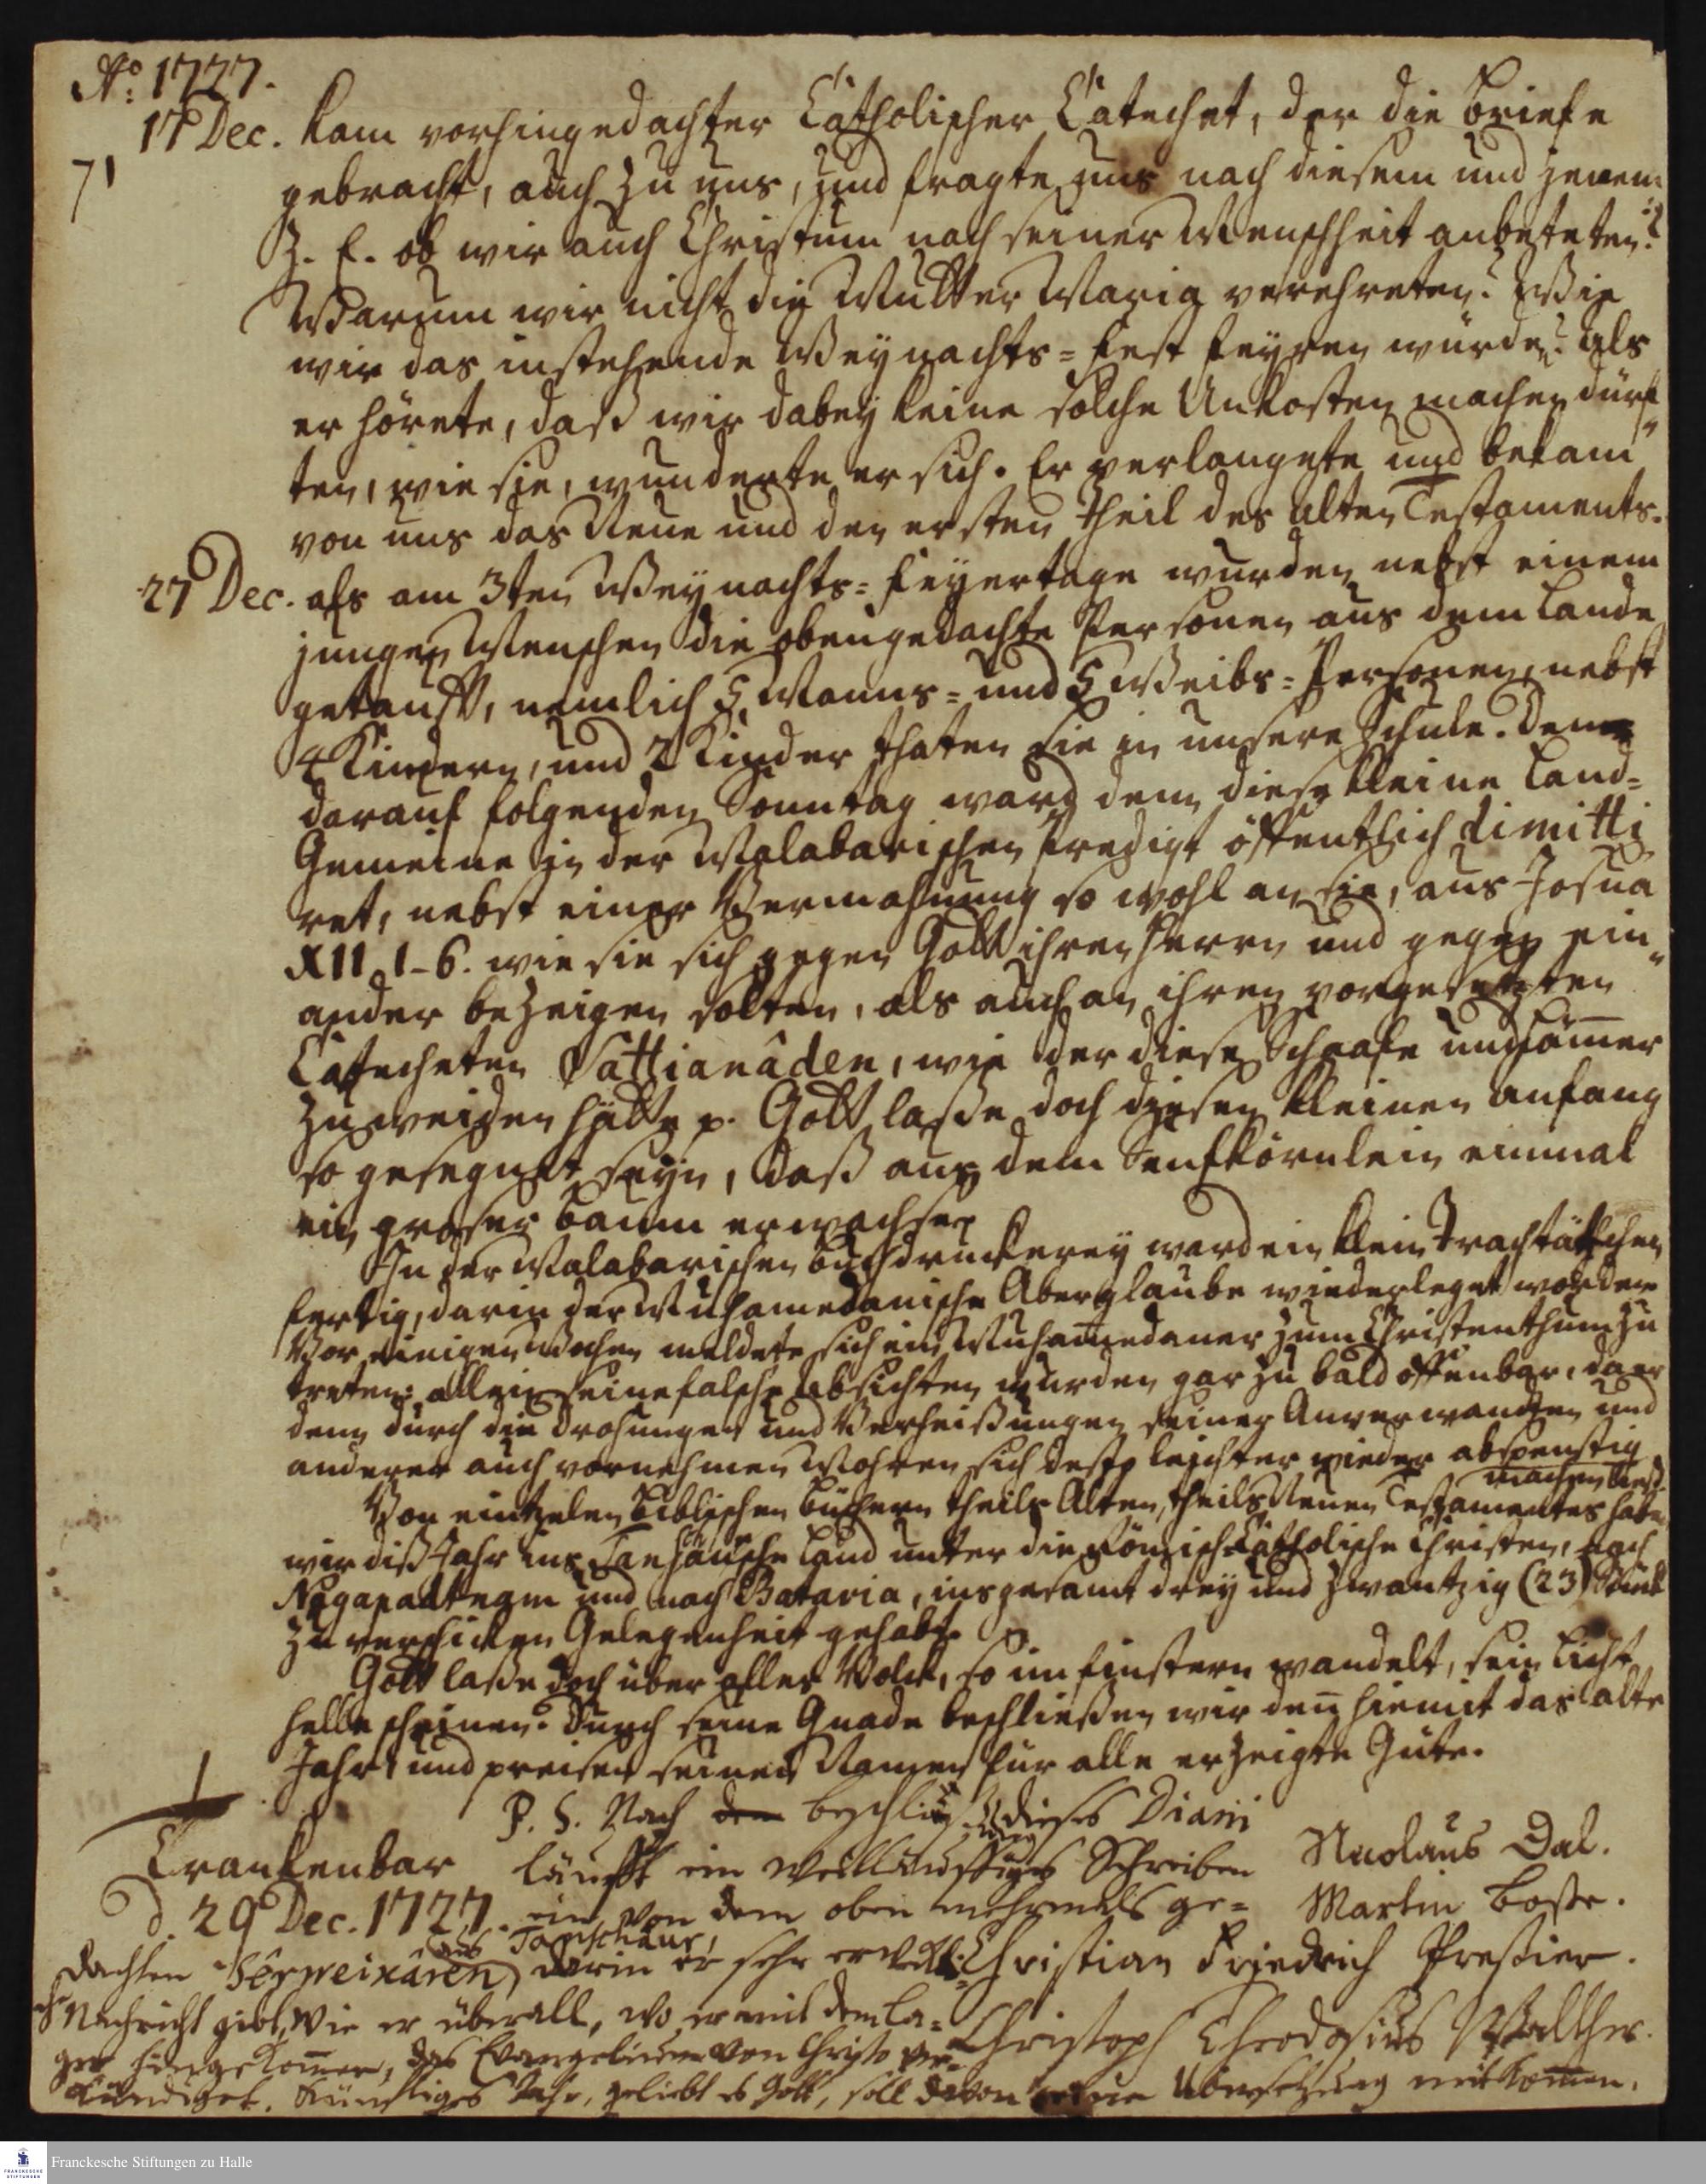 Aº: 1727.
17 Dec. kam vorhingedachter Catholischer Catechet, der die Briefe
71
gebracht, auch zu uns, und fragte uns nach diesem und jenem
Z. E. ob wir auch Christum nach seiner Menschheit anbeteten?
Warum wir nicht die Mutter Maria verehreten? Wie
wir das instehende Weynachts-Fest feyren würden? Als
er hörete, daß wir dabey keine solche Unkosten machen dürf-
ten, wie sie, wunderte er sich. Er verlangete und bekam
von uns das Neue und den ersten Theil des Alten Testaments.
27 Dec. als am 3ten Weynachts-Feyertage wurden nebst einem
jungen Menschen die obengedachte Personen aus dem Lande
getaufft, nemlich 5 Manns- und 5 Weibs-Personen, nebst
4 Kindern, und 2 Kinder thaten sie in unsere Schule. Den
darauf folgenden Sonntag ward denn diese kleine Land-
Gemeine in der Malabarischen Predigt öffentlich dimitti
ret, nebst einer Vermahnung so wohl an sie, aus Josua
XII, 1-6. wie sie sich gegen Gott ihren Herrn und gegen ein-
ander bezeigen solten, als auch an ihren vorgesetzten
Catecheten Sattianâden, wie der diese Schaafe und Lämer
zu weiden hätte p. Gott laße doch diesen kleinen Anfang
so gesegnet seyn, daß aus dem Senfkörnlein einmal
ein großer Baum erwachse.
In der Malabarischen Buchdruckerey ward ein klein Tractätchen
fertig, darin der Muhamedanische Aberglaube wiederleget worden
Vor einigen Wochen meldete sich ein Muhammedaner zum Christenthum zu
treten; allein seine falsche Absichten wurden gar zu bald offenbar, da er
denn durch die Drohungen und Verheißungen seiner Anverwandten und
anderer auch vornehmen Mohren sich desto leichter wieder abspenstig
machen ließ.
Von eintzelen Biblischen Büchern theils Alten, theils Neuen Testamentes haben
wir diß Jahr ins Tanschaurische Land unter die Römisch-Catholische Christen, nach
Nagapattnam und nach Batavia, insgesamt drey und zwantzig (23) Stück
zu verschicken Gelegenheit gehabt.
Gott laße doch über alles Volck, so im finstern wandelt, sein Licht
helle scheinen. Durch seine Gnade beschließen wir den hiemit das alte
Jahr, und preisen seinen Namen für alle erzeigte Güte.
Trankenbar
d. 29 Dec. 1727.
P. S. Nach dem Beschließung dieses Diarii
läufft ein weitläufftiges Schreiben
ein, von dem oben mehrmals ge-
dachten Sêrweikâren aus Tanschaur, darin er sehr erweckli-
che Nachricht gibt, wie er überall, wo er mit dem La-
ger hingekommen, das Evangelium von Christo ver-
kündiget. Künftiges Jahr, geliebt es Gott, soll davon eine Übersetzung mitkommen.
Nicolaus Dal.
Martin Bosse.
Christian Friedrich Pressier.
Christoph Theodosius Walther.
Franckesche Stiftungen zu Halle
FRANCKESCHE
STIFTUNGEN